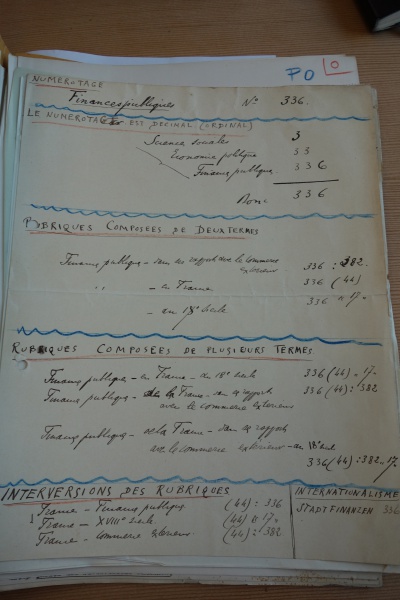 PO
O
NUMEROTAGE
Finances publiques N° 336.
LE NUMEROTAGE EST DECIMAL (ORDINAL)
Science sociales 3
Economie politique 33
Finances publiques 336
Donc 336
RUBRIQUES COMPOSÉES DE DEUX TERMES
Finances publiques – dans ses rapports avec le commerce
extérieur 336 : 382
" – en France 336 (44)
– au 18e siècle 336 "17"
RUBRIQUES COMPOSÉES DE PLUSIEURS TERMES
Finances publiques – en France – au 18e siècle 336 (44) "17"
Finances publiques – de la France – dans ses rapports 336 (44) : 382
avec le commerce extérieur
Finances publiques – de la France – dans ses rapports
avec le commerce extérieur – au 18e siècle
336 (44) : 382 "17"
INTERVERSIONS DES RUBRIQUES
France – Finances publiques (44) : 336
France – XVIIIe siècle (44) "17"
France – Commerce extérieur (44) : 382
INTERNATIONALISME
STADTFINANZEN 336